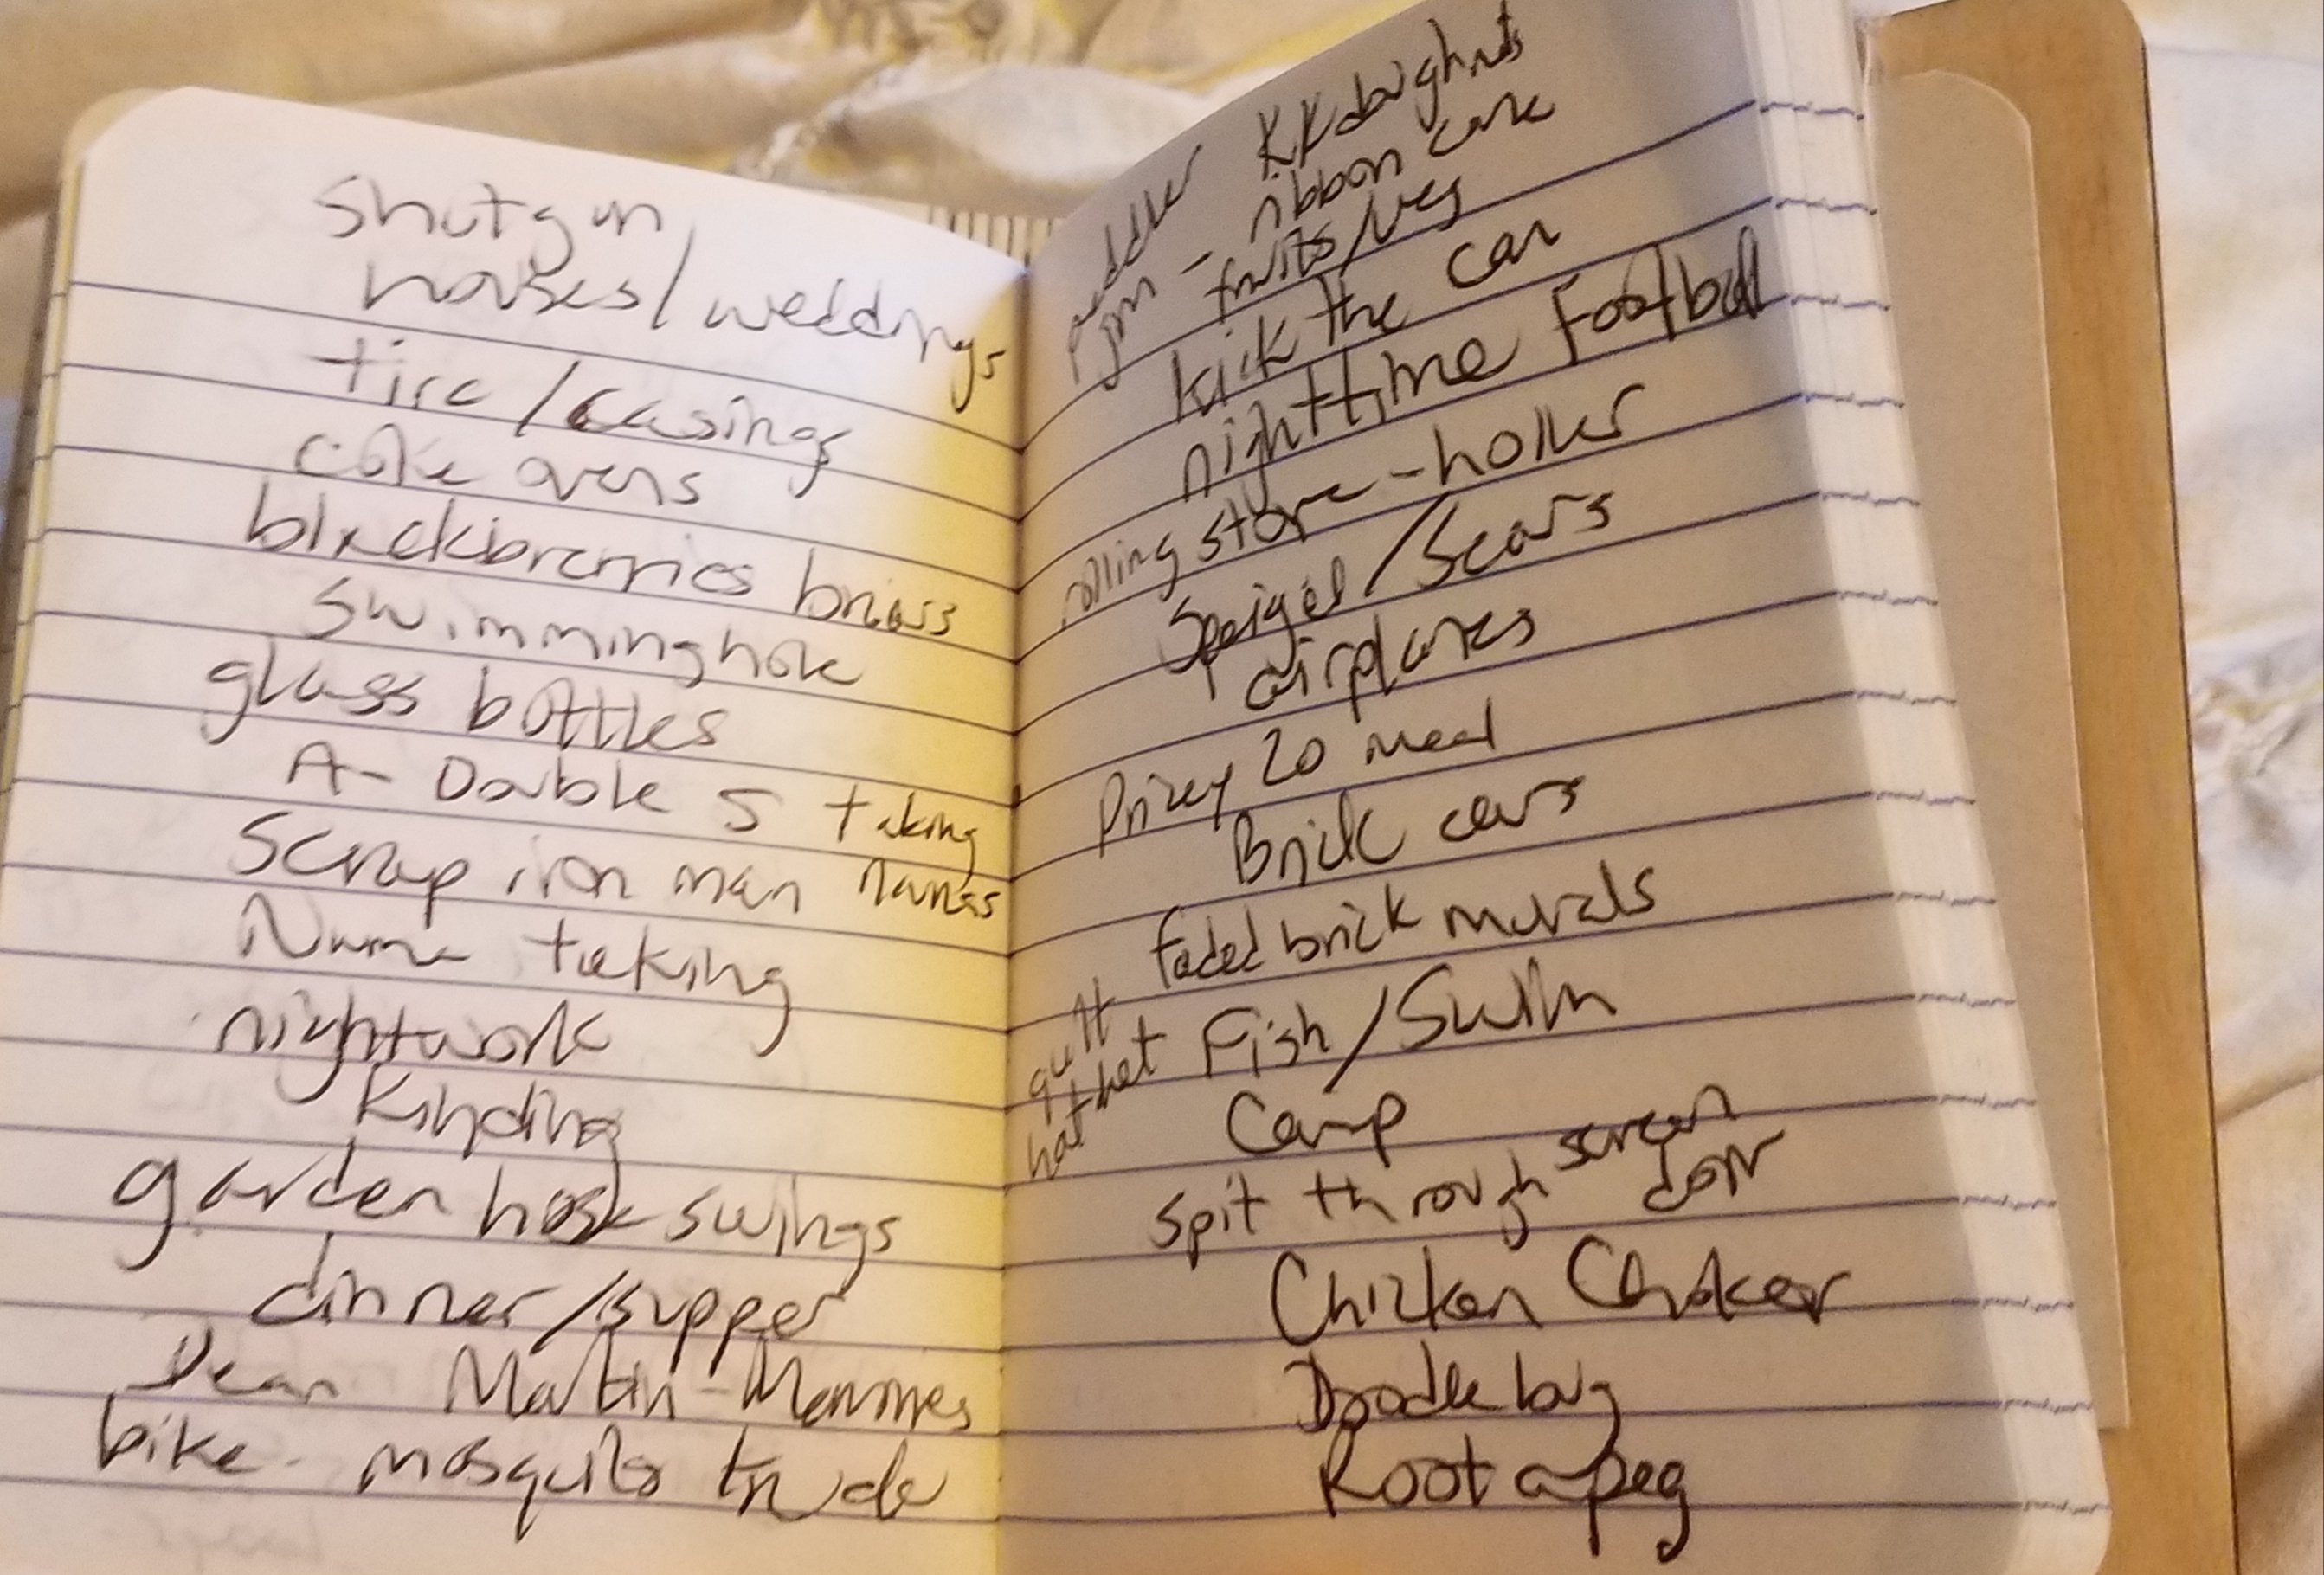 Shotgun
houses/weddings
tire/casings
coke ovens
blackberries briars
Swimming hole
glass bottles
A- Double S taking
Scrap iron man names
Name taking
nightwork
Kinding
garden hose swings
dinner/supper
Dean Martin-Mommies
bike- mosquito truck
peddler KK doughnuts
- ribbon cane
fruits/veg
kick the can
nighttime Football
rolling store-holler
Speigel/Sears
airplanes
20 meal
Brick cars
Faded brick murals
quilt
hat that Fish/Swim
Camp
Spit through screen
door
Chicken Choker
Doodle bug
Root a peg